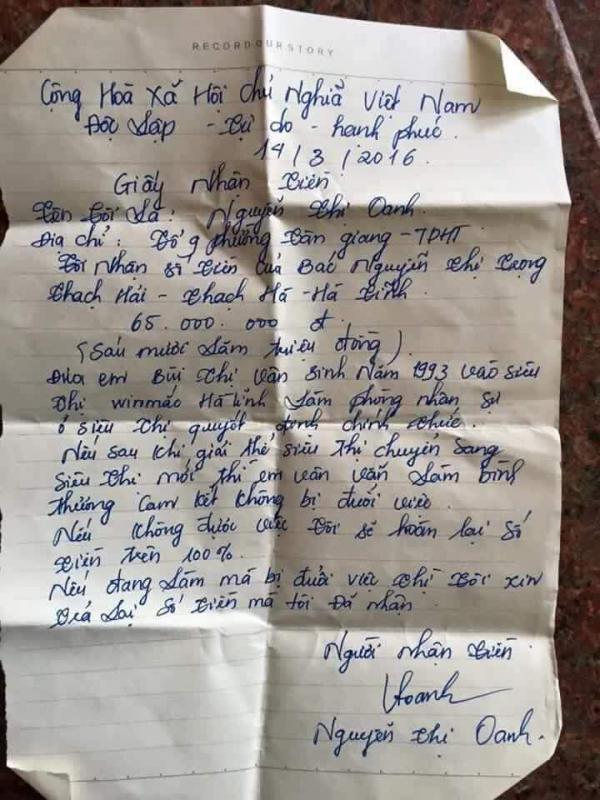 RECORD OUR STORY
Cộng Hoà Xã Hội Chủ Nghĩa Việt Nam
Độc Lập - Tự do - hạnh phúc.
14/3/2016.
Giấy Nhận Tiền
Tên Tôi Là: Nguyễn Thị Oanh.
Địa chỉ: Tổ 9 phường Tân giang - TPHT
Tôi Nhận số Tiền của Bác Nguyễn Thị Trọng
Thạch Hải - Thạch Hà - Hà Tĩnh
65.000.000 đ
(Sáu mươi Lăm triệu đồng)
Đưa em Bùi Thị Vân sinh năm 1993 vào siêu
Thị winmắc Hà Tĩnh Làm phòng nhân sự
ở siêu Thị quyết định chính thức.
Nếu sau khi giải thể siêu thị chuyển sang
siêu Thị mới thì em vân vẫn Làm bình
thường Cam kết không bị đuổi việc.
Nếu không được việc Tôi sẽ hoàn lại số
Tiền trên 100%.
Nếu đang Làm mà bị đuổi việc Thị Tôi xin
Trả Lại số Tiền mà tôi Đã nhận.
Người nhận Tiền
Oanh
Nguyễn Thị Oanh.